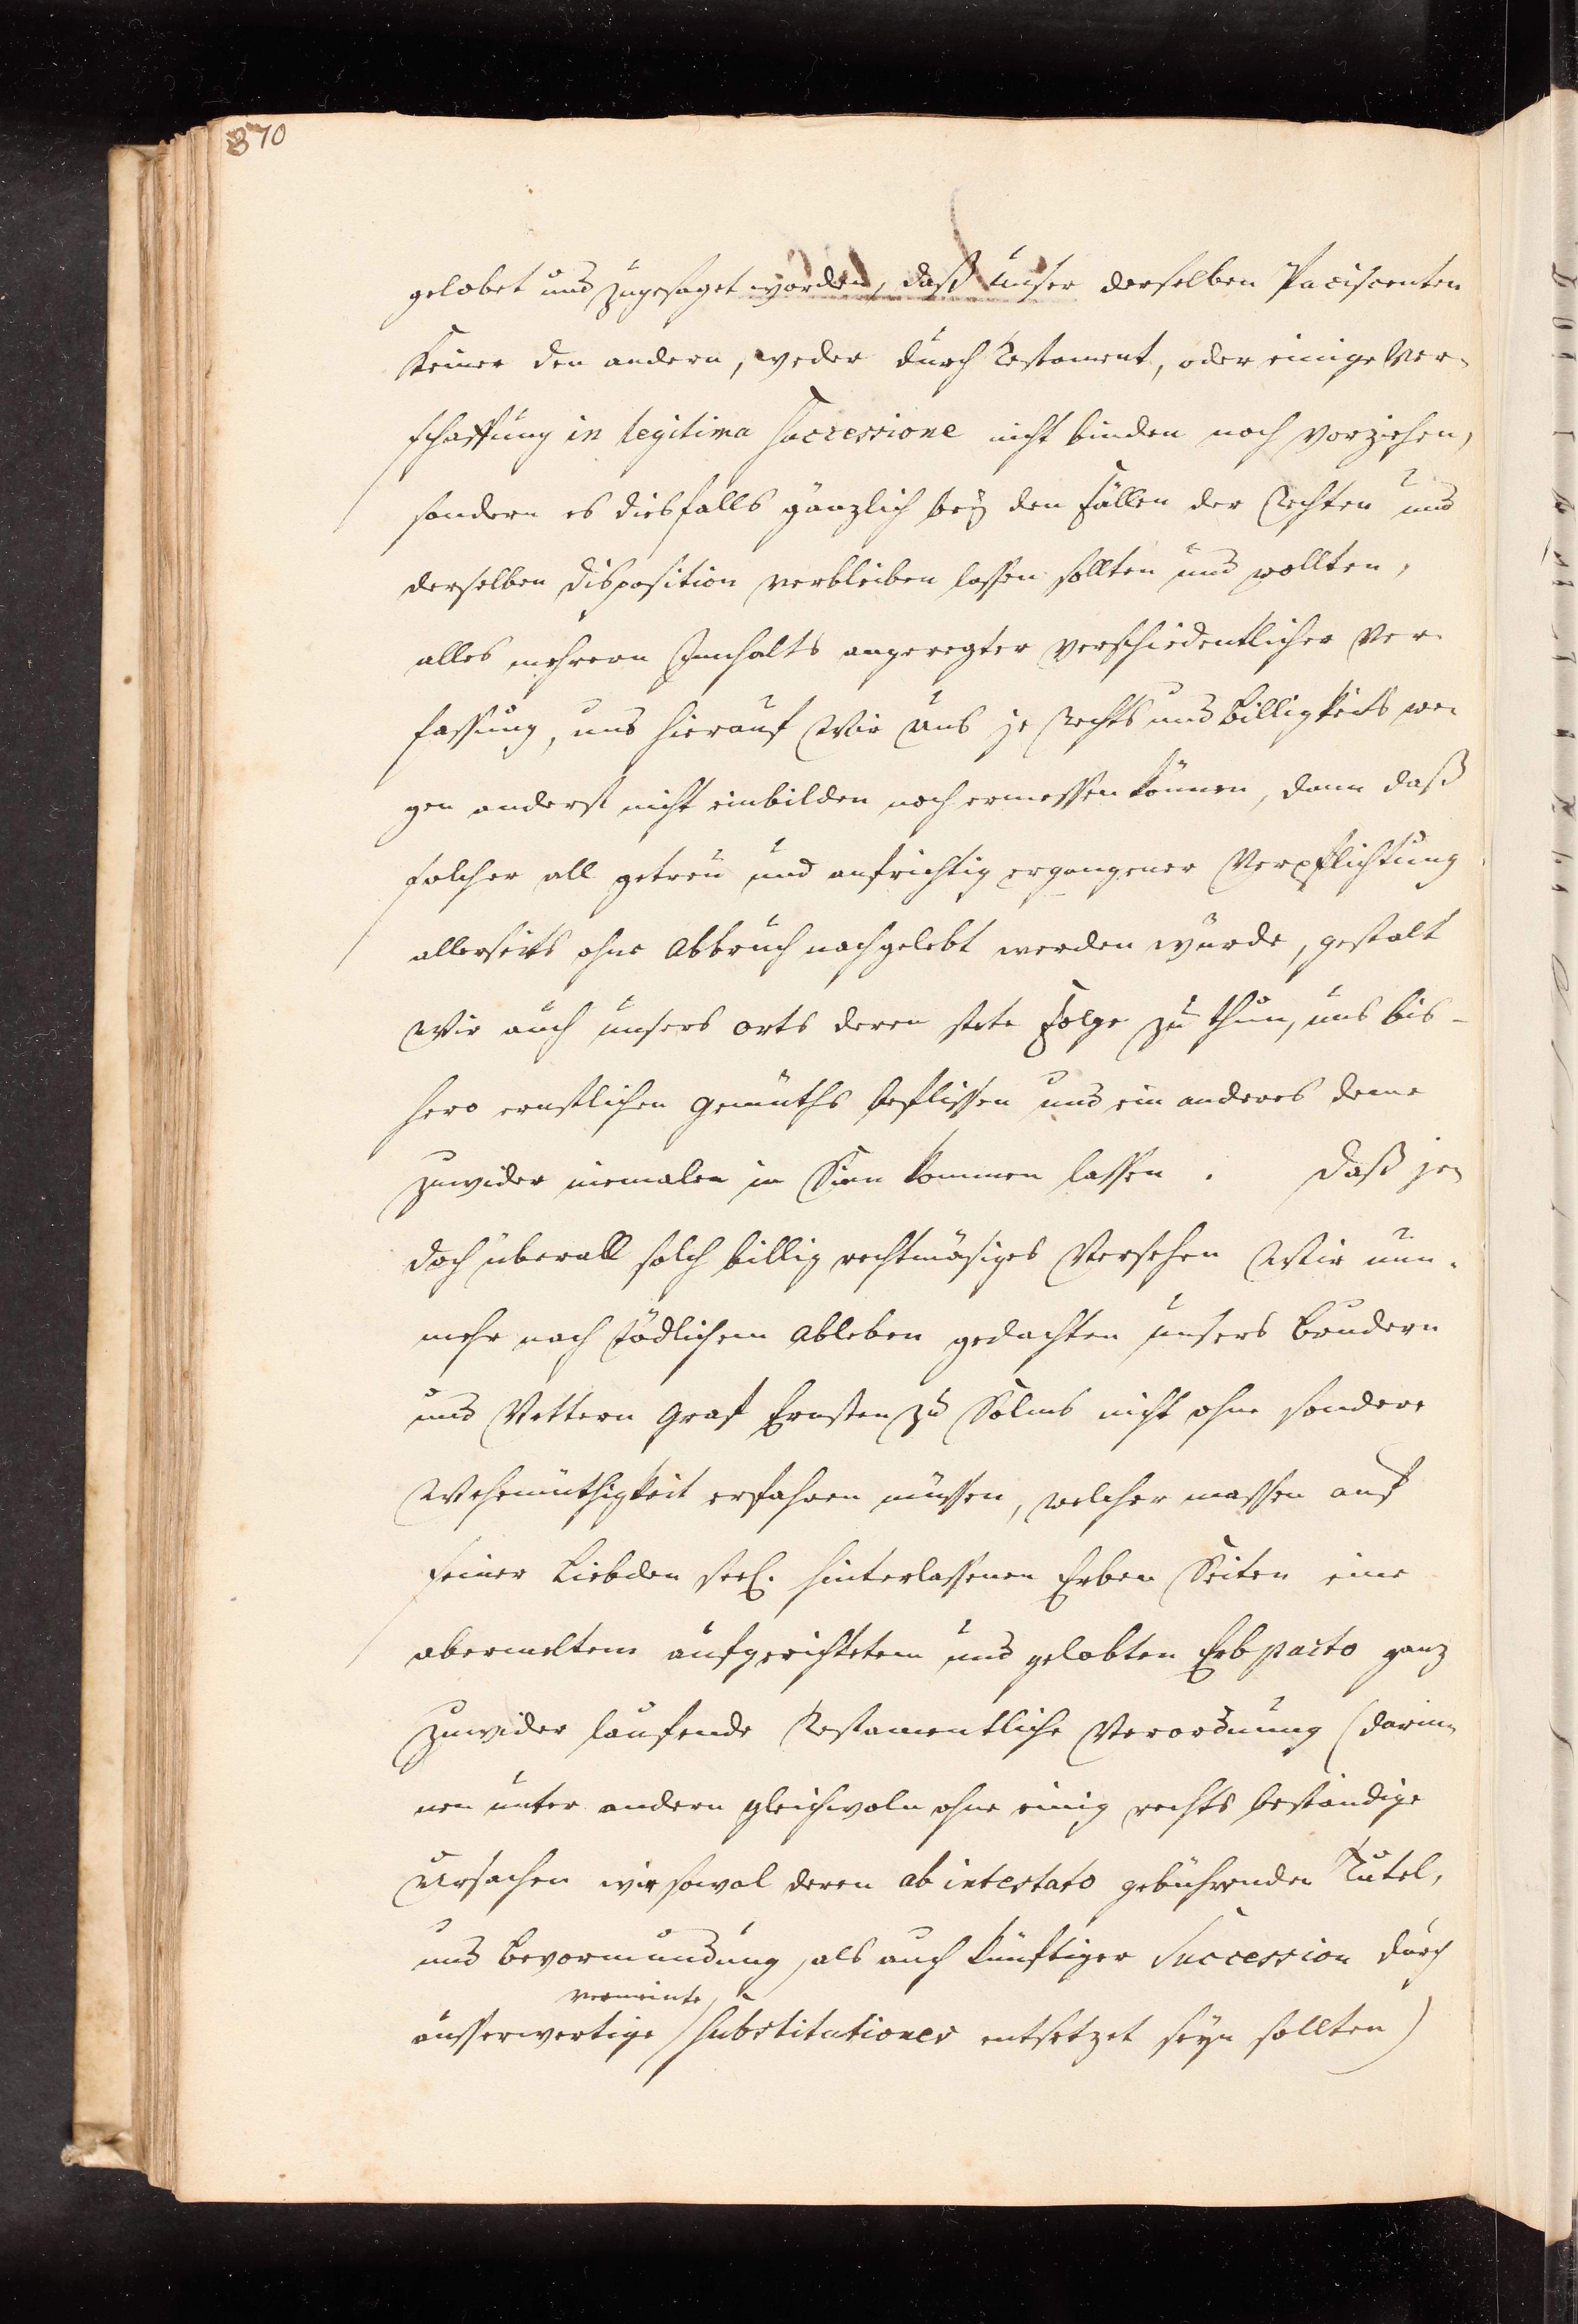 870
gelobet und zugesaget worden, daß unser derselben Paciscenten
Keiner den andern, weder durch Testament, oder einige Ver-
schaffung in legitima Successione nicht binden noch vorziehen,
sondern es diesfalls gänzlich beÿ den Fällen der Rechten und
derselben disposition verbleiben lassen sollten und wollten,
alles mehrern Innhalts angeregter verschiedentlicher Ver-
fassung, und hierauf Wir Uns je Rechts und Billigkeits we-
gen anderst nicht einbilden noch ermessen können, dann daß
solcher all getreu und aufrichtig ergangener Verpflichtung
allerseits ohne Abbruch nachgelebt werden würde, gestalt
Wir auch unsers orts deren stete Folge zu thun, uns bis-
hero ernstlichen Gemüths beflissen und ein anderes deme
zuwider niemalen in Sinn kommen lassen. Daß je-
doch überall solch billig rechtmäsiges Versehen Wir nun-
mehr nach tödlichem Ableben gedachten unsers Brudern
und Vettern Graf Ernsten zu Solms nicht ohne sondere
Wehemüthigkeit erfahren müssen, welcher massen auf
seiner Liebden seel. hinterlassenen Erben Seiten eine
obermeltem aufgerichtetem und gelobten Erbpacto ganz
zuwider laufende Testamentliche Verordnung (darin-
nen unter andern gleichwoln ohne einig rechts beständige
Ursachen wir sowol deren ab intestato gebührenden Tutel,
und Bevormundung, als auch künftiger Succession durch
vermeinte
äusserwertige Substitutiones entsetzet seyn sollten)